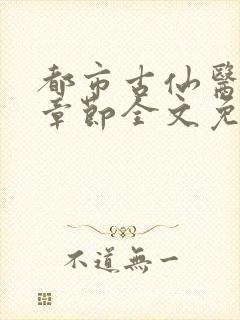 都市古仙醫
章節全文免
不道無一